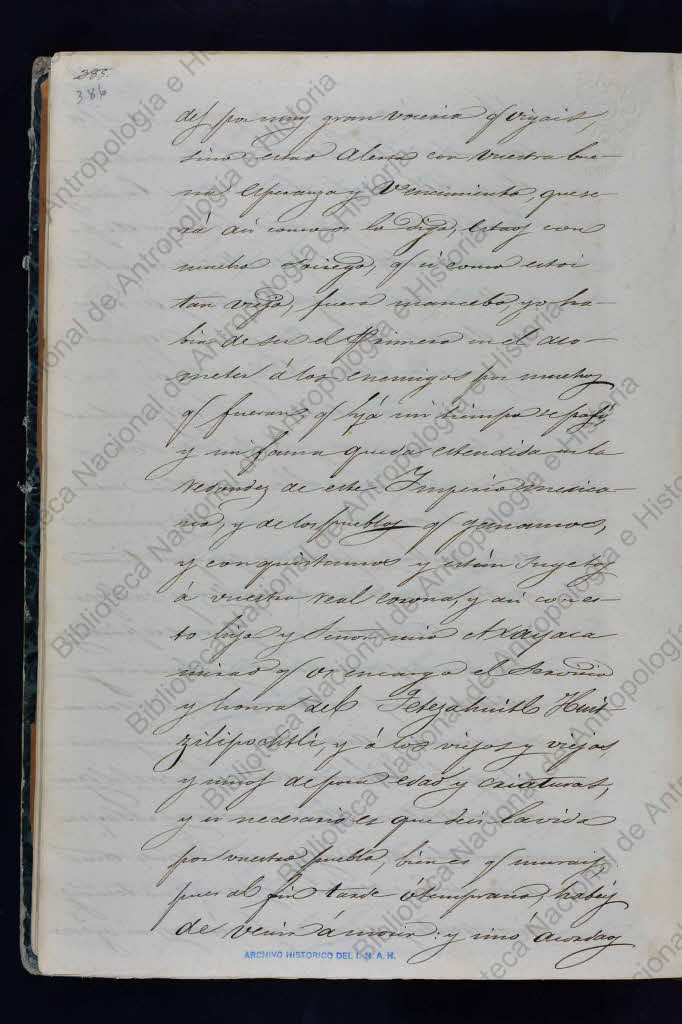 385.
386
des por muy gran voceria q̃ oygais,
sino estad alerta con vuestra bue-
na esperanza y vencimiento, que se-
rá asi como os lo digo, estad con
mucho sosiego, q̃ si como estoi
tan viejo, fuera mancebo, yo ha-
bia de ser el Primero en el aco-
meter á los enemigos por muchos
q̃ fueran, q̃ yá mi tiempo se pasó
y mi fama queda estendida en la
redondez de este Imperio mexica-
no, y de los pueblos q̃ ganamos,
y conquistamos y están sugetos
á vuestra real corona, y asi con es-
to hijo y Señor mio Axayaca
mirad q̃ os encargo el Señorio
y honra del Tetzahuitl Huit
zilipochtli, y á los viejos y viejas,
y niños de poca edad y criaturas,
y si necesario es que deis la vida
por vuestro pueblo, bien es q̃ murais,
pues al fin tarde ó temprano, habeis
de venir á morir: y sino acordaos
ARCHIVO HISTORICO DEL I. N. A. H.
Biblioteca Nacional de Antropología e Historia